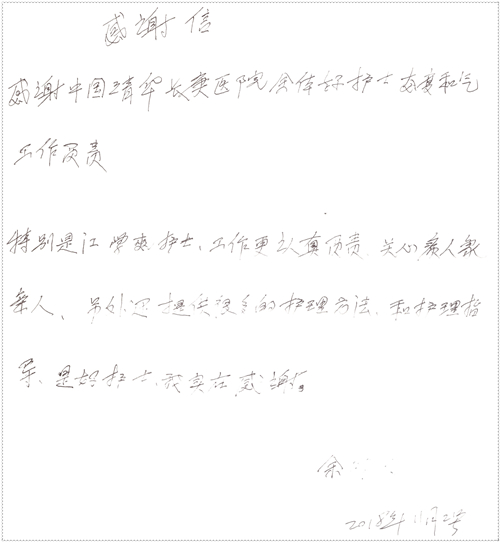 感謝信
感谢中国清华长庚医院全体好护士态度和气
工作负责
特别是江学爽护士、工作更认真负责 关心病人就
亲人、另外还提供很多的护理方法、和护理指
导、是好护士、我实在感谢。
余
2018年11月2号